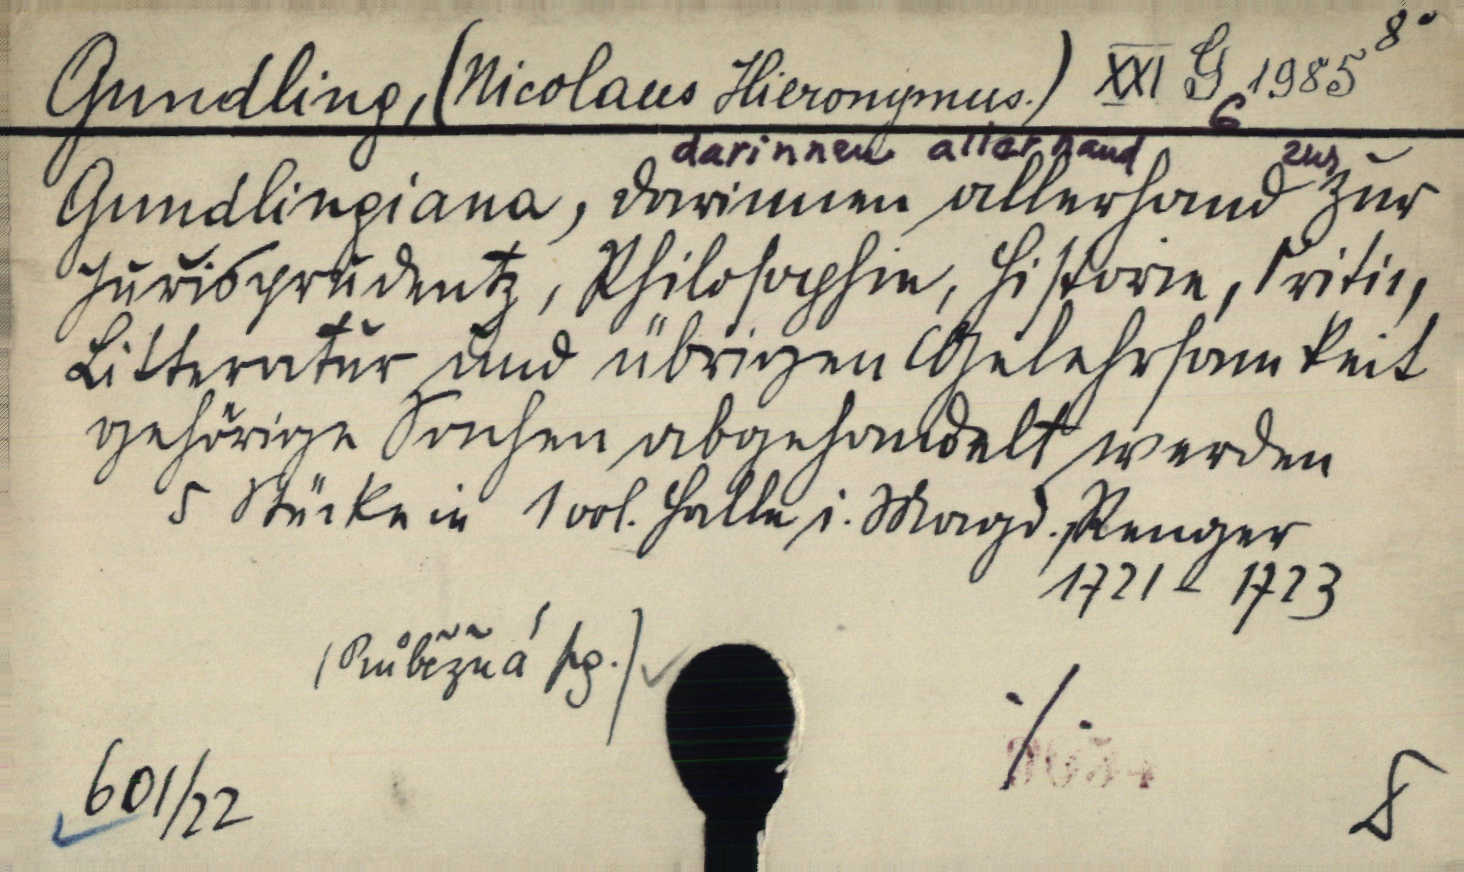 Gundling, (Nicolaus Hieronymus.) XXI G 1985 8°
6
darinnen allerhand zur
Gundlingiana, darinnen allerhand zur
Jurisprudentz, Philosophie, Historie, Critic,
Litteratur und übrigen Gelehrsamkeit
gehörige Sachen abgehandelt werden
5 Stücke in 1 vol. Halle i. Magd. Renger
1721 - 1723
(Průběžná pg.)
601/22